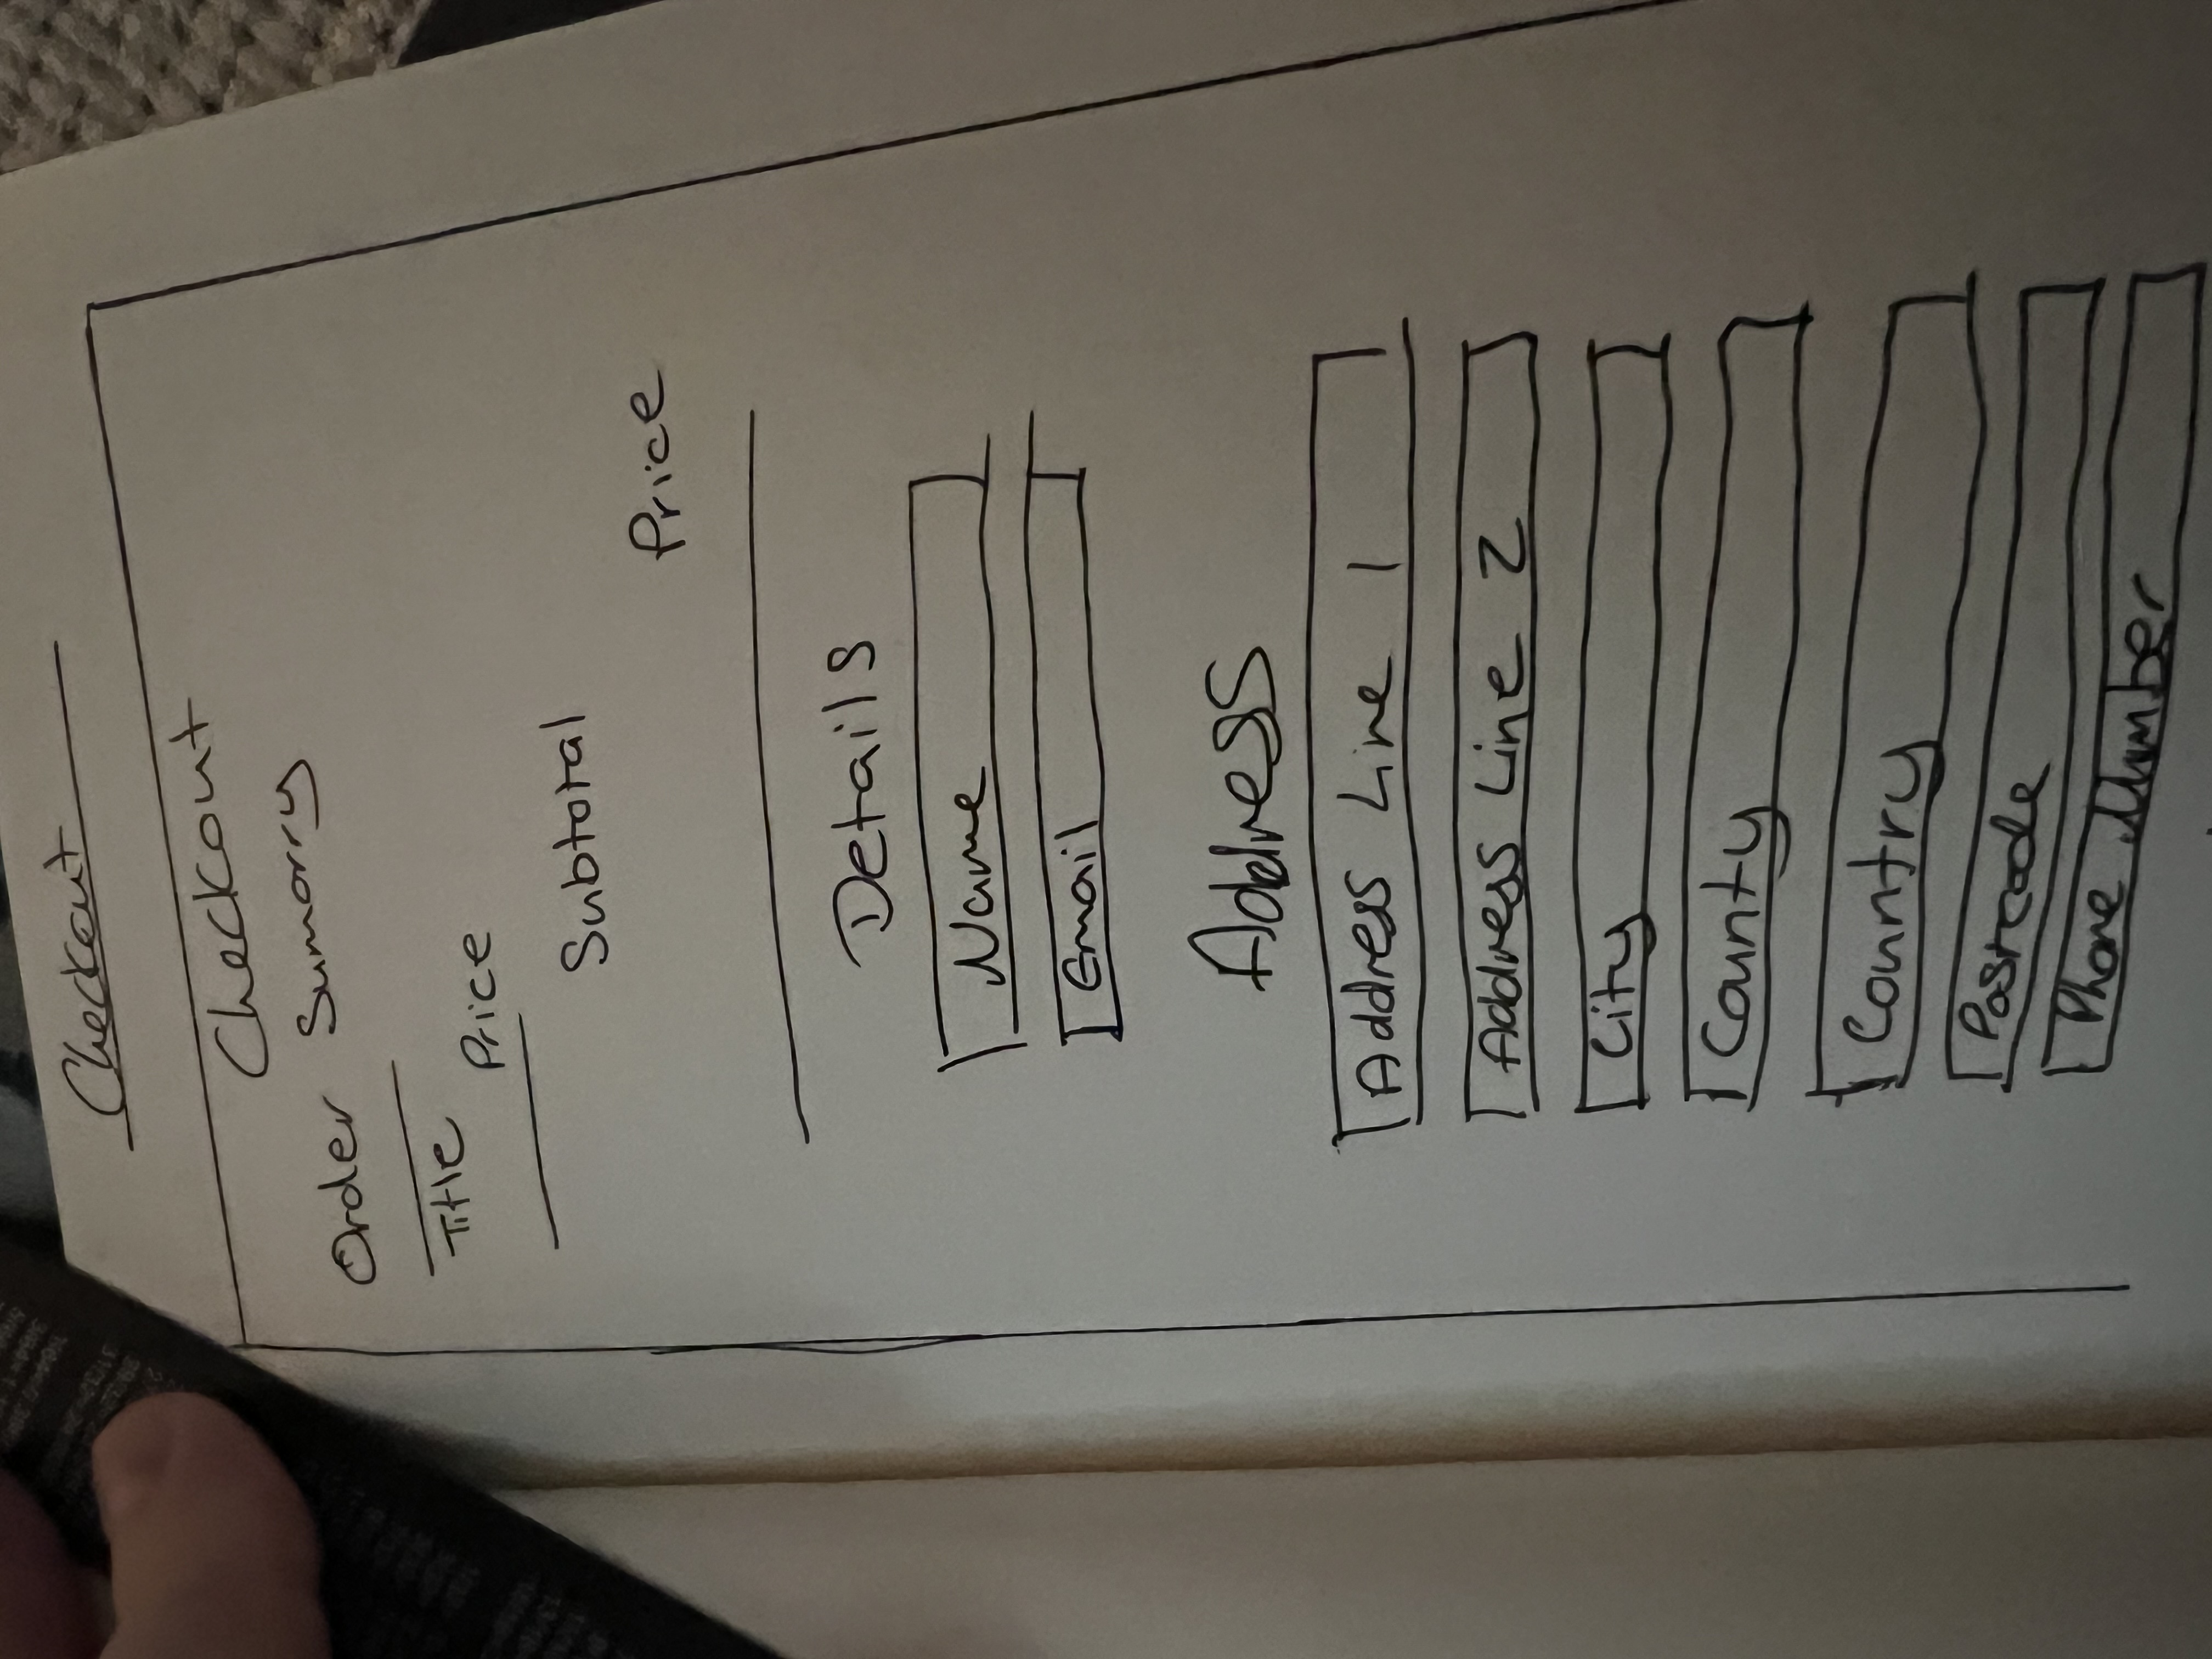 Checkout
Checkout
Order Sumarry
Title
Price
Subtotal
Price
Details
Name
Email
Address
Address Line 1
Address Line 2
City
County
Country
Postcode
Phone Number